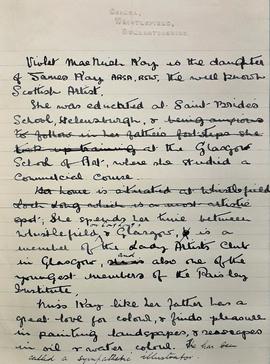 WHISTLEFIELD,
DUMBARTONSHIRE
Violet MacNeish Kay is the daughter
of James Kay ARSA, RSW, the well known
Scottish Artist.
She was educated at Saint Bride's
School, Helensburgh, & being anxious
To follow in her father's footsteps she
took up training at the Glasgow
School of Art, where she studied a
Commercial Course.
Her home is situated at Whistlefield
Loch Long which is a most artistic
spot, She spends her time between
Whistlefield & Glasgow, is a
member of the Lady Artists Club
in Glasgow, and also one of the
youngest members of the Paisley
Institute.
Miss Kay like her father has a
great love for colour, & finds pleasure
in painting landscapes, & seascapes
in oil & water colour. She has been
called a sympathetic illustrator.